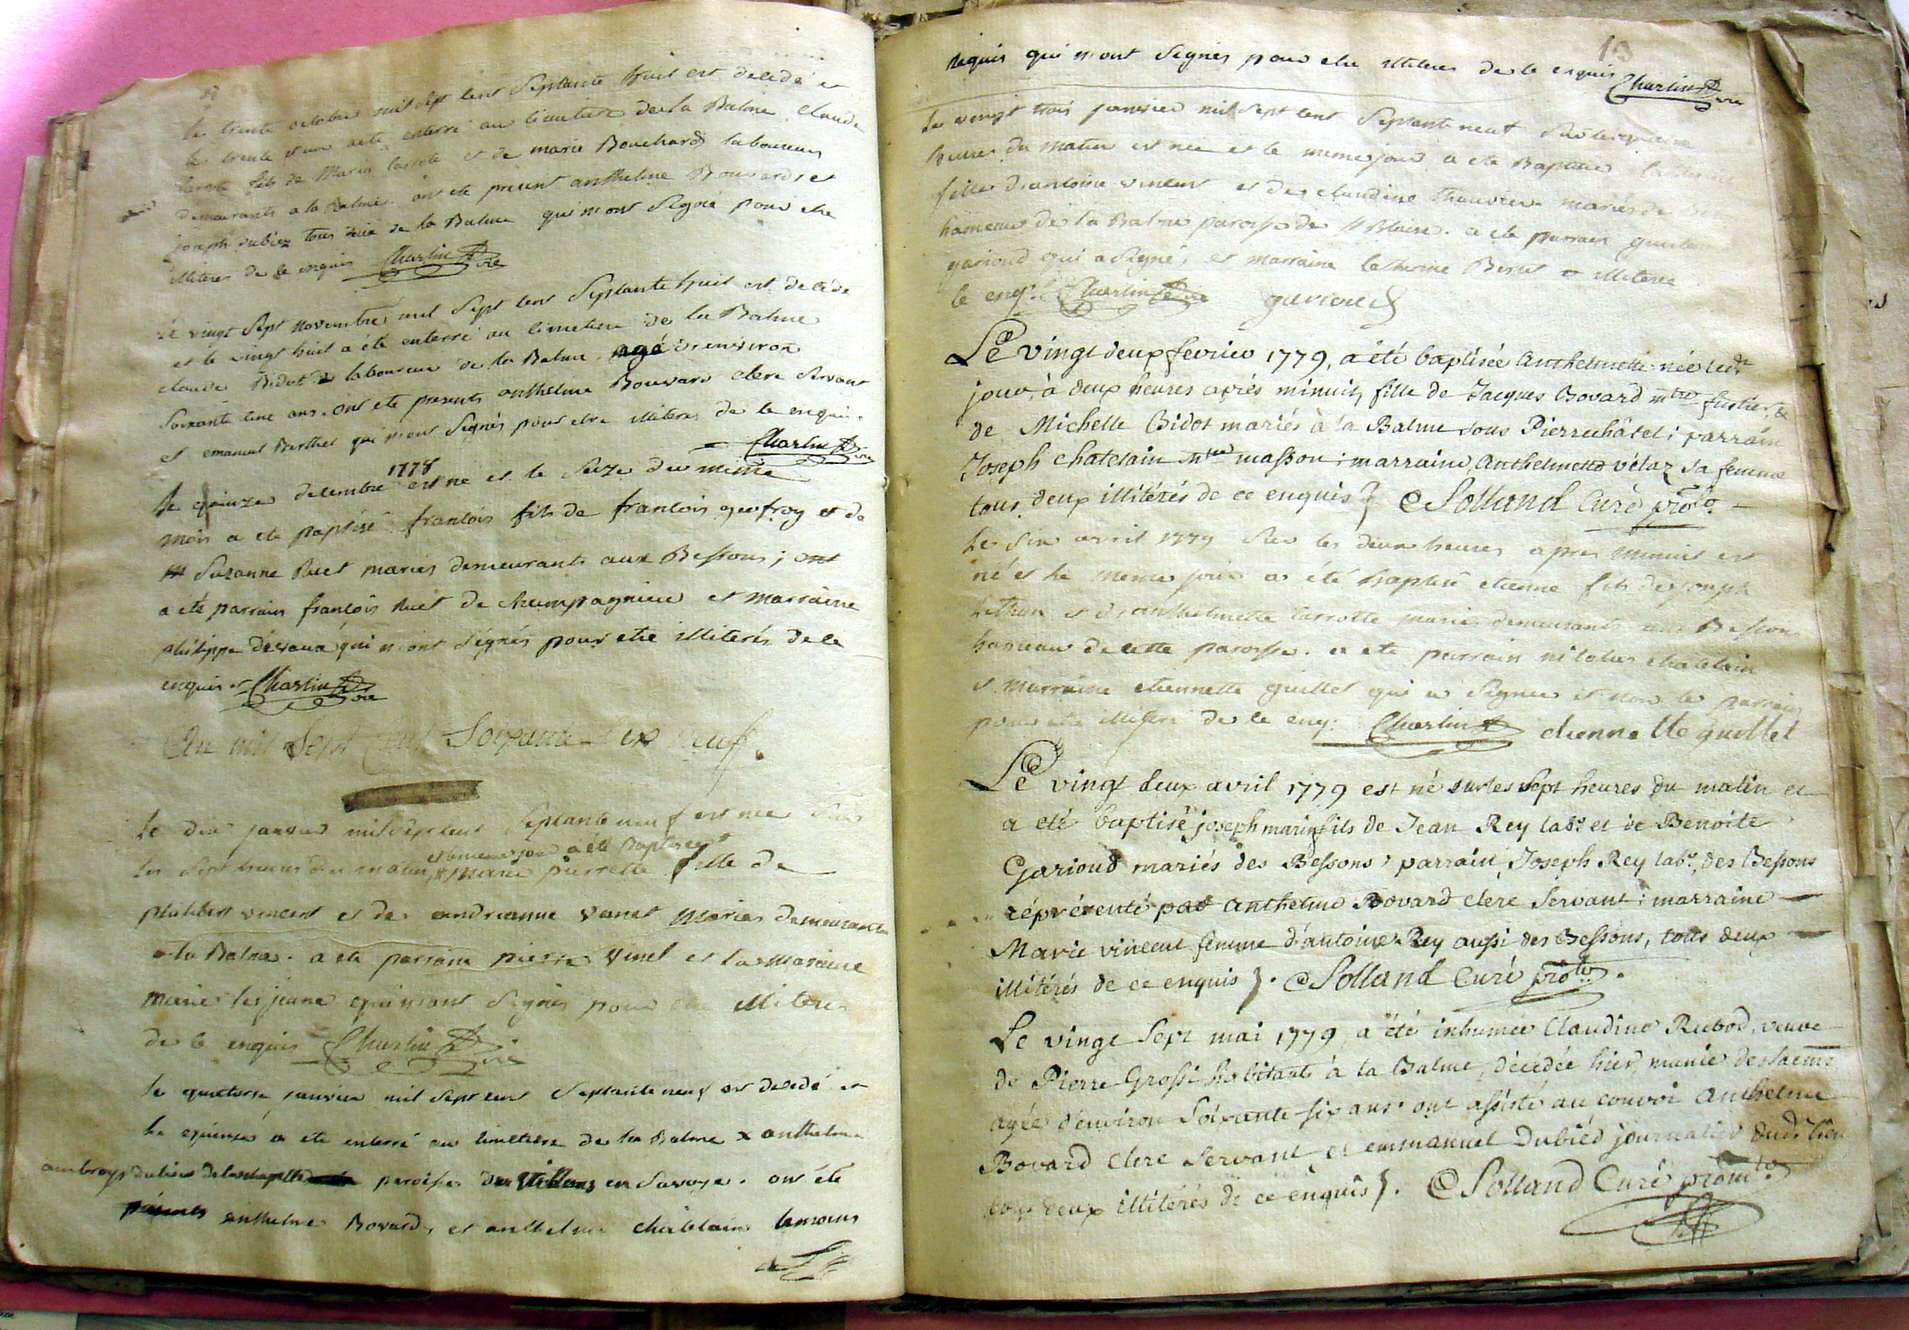 Le trente octobre mil sept cent septante huit est decedé et
le trente et un a eté enterré au cimetiere de la Balme Claude
fils de et de marie Bouchard laboureur
demeurants a la Balme. ont eté présent anthelme Bouvard et
joseph dubiez tous deux de la Balme qui n'ont signé pour etre
illiteres de ce enquis Charlin vre
Le vingt sept novembre mil sept cent septante huit est decede
et le vingt huit a eté enterré au cimetiere de la Balme
claude Bidot laboureur de la Balme agé d'environ
soixante ans. ont eté presents anthelme Bouvard clerc servant
et emanuel Berthet qui n'ont signés pour etre illiteres de ce enquis.
Charlin vre
1778
Le quinze decembre est né et le seize du meme
mois a eté baptisé francois fils de francois geofroy et de
Suzanne Ruet mariés demeurants aux Bessons ; ont
a eté parrain francois Ruet de champagnieu et marraine
philippe qui n'ont signés pour etre illiterés de ce
enquis et Charlin vre
L'an mil sept cent soixante dix neuf.
Le dix janvier mil sept cent septante neuf est née sur
et le meme jour a été Baptisée
les sept heures du matin, marie pierrette fille de
philibert vincent et de andrianne vanet mariés demeurants
a la Balme. a eté parrain pierre vinet et la maraine
marie qui n'ont signés pour etre illiteres
de ce enquis Charlin vre
le quatorse janvier mil sept cent septante neuf est decedé et
le quinze a eté enterré au cimetiere de la Balme x anthelme
ambroys paroisse de en Savoye. ont été
présents anthelme Bovard, et anthelme Châtelain temoins
requis qui n'ont signés pour etre illiteres de ce enquis Charlin vre
13
Le vingt trois janvier mil sept cent septante neuf sur les
heures du matin est née et le meme jour a eté Baptisée
fille d'antoine vincent et de claudine mariés de
hameau de la Balme paroisse de St Blaise. a eté parrain
garioud qui a signé, et marraine Catherine illiterée
de ce enq. Charlin vre gurioud
Le vingt deux fevrier 1779, a été baptisée Anthelmette née ledt
jour, à deux heures après minuit, fille de Jacques Bovard mtre fustier, &
de Michelle Bidot mariés à la Balme sous Pierrechâtel ; parrain
Joseph chatelain mtre masson ; marraine Anthelmette vétaz sa femme
tous deux illitérés de ce enquis Solland Curé prote.
Le six avril 1779 sur les deux heures apres minuit est
né et le meme jour a été baptisé etienne fils de joseph
et d'anthelmette mariés demeurants aux Bessons
hameau de cette paroisse. a eté parrain nicolas châtelain
et marraine etiennette guillet qui a signée et non le parrain
pour etre illiteré de ce enq. Charlin etiennette guillet
Le vingt deux avril 1779 est né sur les sept heures du matin et
a été baptisé joseph marin fils de Jean Rey labr. et de Benoite
Garioud mariés des Bessons, parrain Joseph Rey labr. des Bessons
réprésenté par anthelme Bovard clerc servant ; marraine
Marie vincent femme d'antoine Rey aussi des Bessons, tous deux
illitérés de ce enquis. Solland Curé prote.
Le vingt sept mai 1779, a été inhumée Claudine Rubod, veuve
de Pierre Grossi habitants à la Balme, décédée hier, munie des sacrmts
agée d'environ soixante six ans. ont assisté au convoi anthelme
Bovard clerc servant, et emmanuel Dubied journalier dudt lieu
tous deux illitérés de ce enquis. Solland Curé promte.